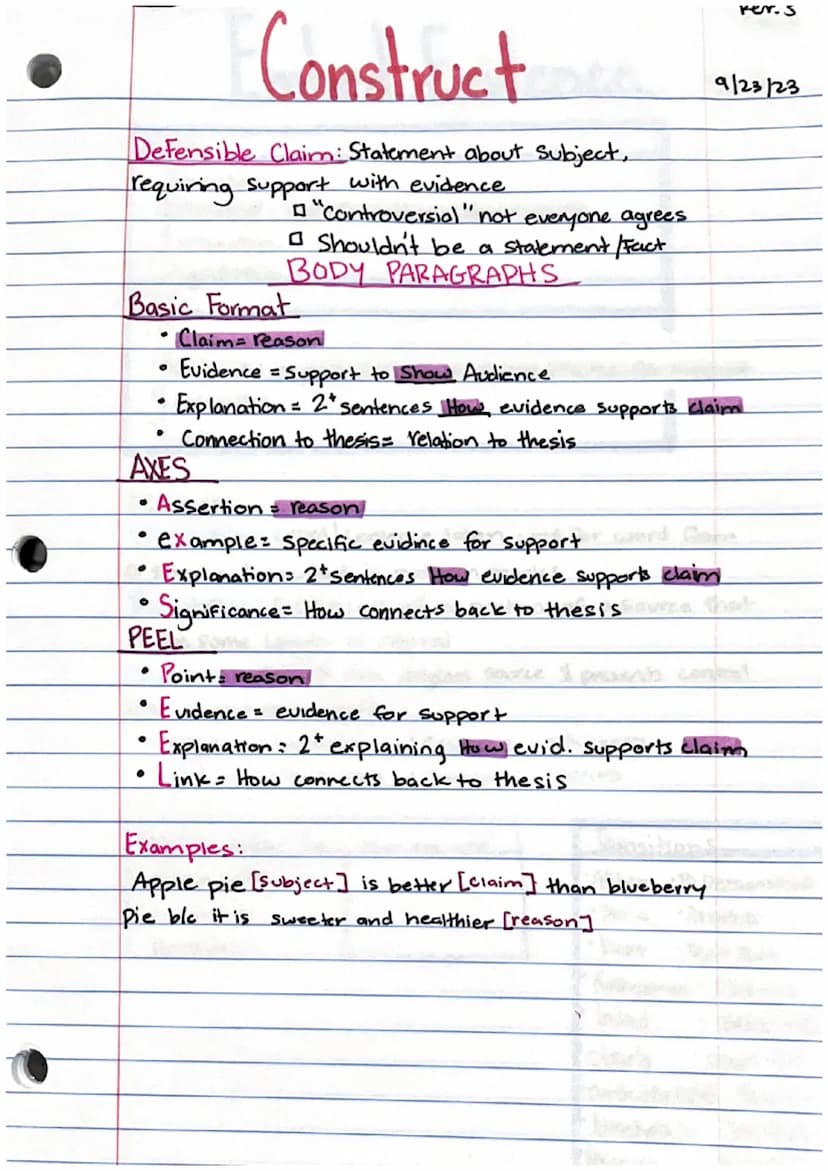 Per. 3
Construct
9/23/23
Defensible Claim: Statement about subject,
requiring support with evidence
"controversial" not everyone agrees
Shouldn't be a statement/Fact
BODY PARAGRAPHS
Basic Format
• Claim= reason
• Evidence = support to Show Audience
• Explanation = 2+ sentences How evidence supports claim
• Connection to thesis= relation to thesis
AXES
• Assertion = reason
• example= specific evidince for support
• Explanation= 2+ sentences How evidence supports claim
• Significance= How connects back to thesis
PEEL
• Point= reason
• Evidence = evidence for support
• Explanation = 2+ explaining How evid. supports claim
• Link = How connects back to thesis
Examples:
Apple pie [subject] is better [claim] than blueberry
pie b/c it is sweeter and healthier [reason]